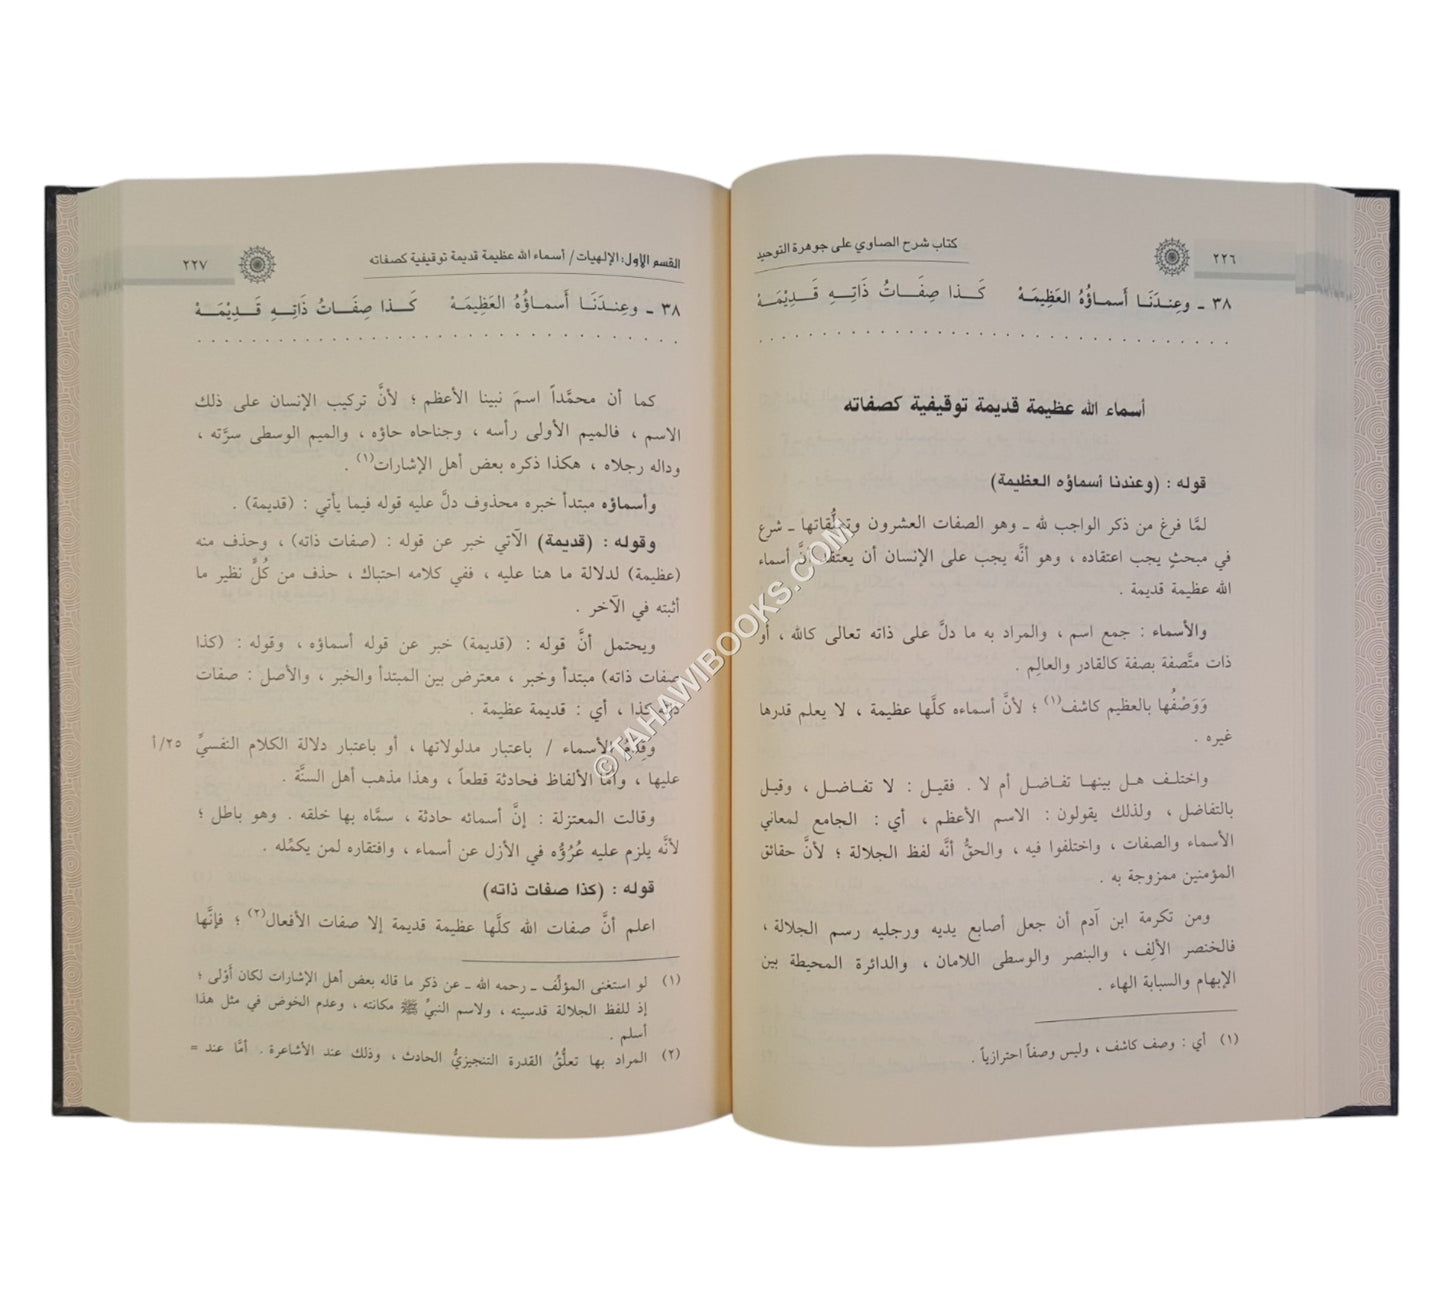 ٢٢٦
كتاب شرح الصاوي على جوهرة التوحيد
٣٨ ـ وعِندَنَا أَسماؤُهُ العَظِيمَهْ كَـذا صِفَـاتُ ذَاتِـهِ قَـدِيْمَـهْ
أسماء الله عظيمة قديمة توقيفية كصفاته
قوله : (وعندنا أسماؤه العظيمة)
لمَّا فرغ من ذكر الواجب لله ـ وهو الصفات العشرون وتعلُّقاتها ـ شرع
في مبحثٍ يجب اعتقاده ، وهو أنَّه يجب على الإنسان أن يعتقد أنَّ أسماء
الله عظيمة قديمة .
والأسماء : جمع اسم ، والمراد به ما دلَّ على ذاته تعالى كالله ، أو
ذات متَّصفة بصفة كالقادر والعالِم .
وَوَصْفُها بالعظيم كاشف(١) ؛ لأنَّ أسماءه كلَّها عظيمة ، لا يعلم قدرها
غيره .
واختلـف هـل بينهـا تفـاضـل أم لا . فقيـل : لا تفـاضـل ، وقيـل
بالتفاضل ، ولذلك يقولون : الاسم الأعظم ، أي : الجامع لمعاني
الأسماء والصفات ، واختلفوا فيه ، والحقُّ أنَّه لفظ الجلالة ؛ لأنَّ حقائق
المؤمنين ممزوجة به .
ومن تكرمة ابن آدم أن جعل أصابع يديه ورجليه رسم الجلالة ،
فالخنصر الألِف ، والبنصر والوسطى اللامان ، والدائرة المحيطة بين
الإبهام والسبابة الهاء .
(١) أي : وصف كاشف ، وليس وصفاً احترازياً .
القسم الأول: الإلهيات / أسماء الله عظيمة قديمة توقيفية كصفاته
٢٢٧
٣٨ ـ وعِندَنَا أَسماؤُهُ العَظِيمَهْ كَـذا صِفَـاتُ ذَاتِـهِ قَـدِيْمَـهْ
كما أن محمَّداً اسمَ نبينا الأعظم ؛ لأنَّ تركيب الإنسان على ذلك
الاسم ، فالميم الأولى رأسه ، وجناحاه حاؤه ، والميم الوسطى سرَّته ،
وداله رجلاه ، هكذا ذكره بعض أهل الإشارات(١) .
وأسماؤه مبتدأ خبره محذوف دلَّ عليه قوله فيما يأتي : (قديمة) .
وقوله : (قديمة) الآتي خبر عن قوله : (صفات ذاته) ، وحذف منه
(عظيمة) لدلالة ما هنا عليه ، ففي كلامه احتباك ، حذف من كُلٍّ نظير ما
أثبته في الآخر .
ويحتمل أنَّ قوله : (قديمة) خبر عن قوله أسماؤه ، وقوله : (كذا
صفات ذاته) مبتدأ وخبر ، معترض بين المبتدأ والخبر ، والأصل : صفات
ذاته كذا ، أي : قديمة عظيمة .
وقِدَمُ الأسماء / باعتبار مدلولاتها ، أو باعتبار دلالة الكلام النفسيِّ ٢٥/أ
عليها ، وأمَّا الألفاظ فحادثة قطعاً ، وهذا مذهب أهل السنَّة .
وقالت المعتزلة : إنَّ أسمائه حادثة ، سمَّاه بها خلقه . وهو باطل ؛
لأنَّه يلزم عليه عُرُوُّه في الأزل عن أسماء ، وافتقاره لمن يكمِّله .
قوله : (كذا صفات ذاته)
اعلم أنَّ صفات الله كلَّها عظيمة قديمة إلا صفات الأفعال(٢) ؛ فإنَّها
(١) لو استغنى المؤلِّف ـ رحمه الله ـ عن ذكر ما قاله بعض أهل الإشارات لكان أَولى ؛
إذ للفظ الجلالة قدسيته ، ولاسم النبيِّ ﷺ مكانته ، وعدم الخوض في مثل هذا
أسلم .
(٢) المراد بها تعلُّقُ القدرة التنجيزيُّ الحادث ، وذلك عند الأشاعرة . أمَّا عند =
© TAHAWIBOOKS.COM